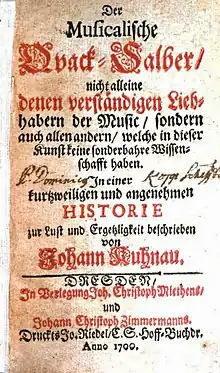 Der
Musicalische
Qvack-Salber/
nicht alleine
denen verständigen Lieb-
habern der Music/ sondern
auch allen andern/ welche in dieser
Kunst keine sonderbahre Wissen-
schafft haben.
In einer
kurtzweiligen und angenehmen
HISTORIE
zur Lust und Ergetzligkeit beschrieben
von
Johann Kuhnau.
DRESDEN,
In Verlegung Joh. Christoph Miethens,
und
Johann Christoph Zimmermanns.
Druckts Jo. Riedel/ C. S. Hoff-Buchdr.
Anno 1700.